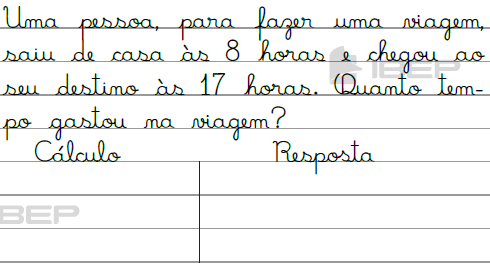 Uma pessoa, para fazer uma viagem,
saiu de casa às 8 horas e chegou ao
IBEP
seu destino às 17 horas. Quanto tem-
po gastou na viagem?
Cálculo Resposta
BEP